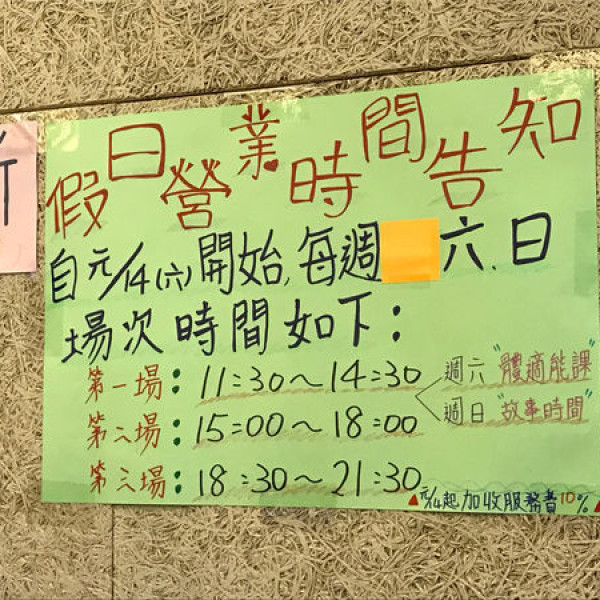 假日營業時間告知
自元/14(六)開始,每週六.日
場次時間如下:
第一場:11:30~14:30
第二場:15:00~18:00
第三場:18:30~21:30
週六"體適能課"
週日"故事時間"
▲元/4起加收服務費10%▲